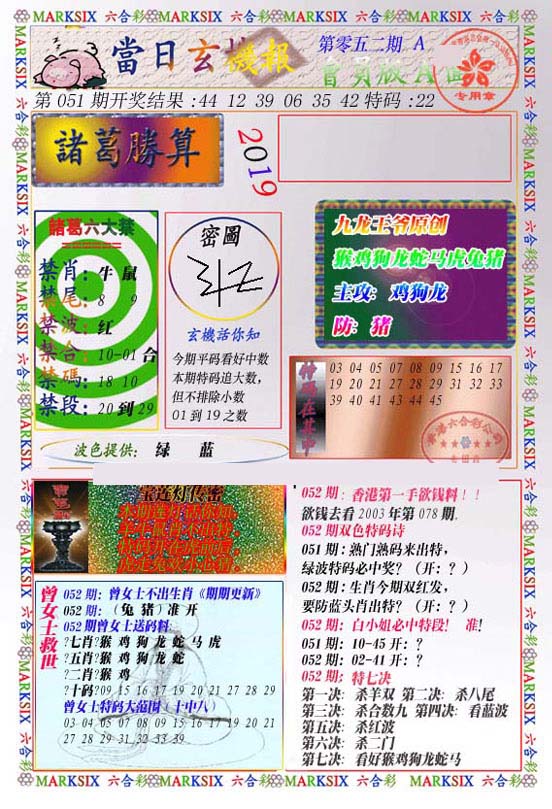 MARKSIX 六合彩 MARKSIX 六合彩 MARKSIX 六合彩 MARKSIX
當日玄機報
第零五二期 A
會員版A面
专用章
第 051 期开奖结果 :44 12 39 06 35 42 特码 :22
諸葛勝算
2019
諸葛六大禁
禁肖: 牛 鼠
禁尾: 8 9
禁波: 红
禁合: 10-01 合
禁碼: 18 10
禁段: 20 到 29
密圖
玄機话你知
今期平码看好中数
本期特码追大数,
但不排除小数
01 到 19 之数
九龙王爷原创
猴鸡狗龙蛇马虎兔猪
主攻: 鸡狗龙
防: 猪
特码在其中
03 04 05 07 08 09 15 16 17
19 20 21 27 28 29 31 32 33
39 40 41 43 44 45
波色提供: 绿 蓝
宝莲灯传密
曾女士救世
052 期: 曾女士不出生肖《期期更新》
052 期: (兔 猪) 准 开
052 期曾女士送码料:
?七肖?猴 鸡 狗 龙 蛇 马 虎
?五肖?猴 鸡 狗 龙 蛇
?二肖?猴 鸡
?十码?09 15 16 17 19 20 21 27 28 29
曾女士特码大范围 (十中八)
03 04 05 07 08 09 15 16 17 19 20 21
27 28 29 31 32 33 39
052 期 : 香港第一手欲钱料 ! !
欲钱去看 2003 年第 078 期.
052 期双色特码诗
051 期 : 熱门熱码来出特,
绿波特码必中奖? (开: ? )
052 期 : 生肖今期双红发,
要防蓝头肖出特? (开: ? )
052 期: 白小姐必中特段! 准!
051 期: 10-45 开: ?
052 期: 02-41 开: ?
052 期: 特七决
第一决: 杀羊双 第二决: 杀八尾
第三决: 杀合数九 第四决: 看蓝波
第五决: 杀红波
第六决: 杀二门
第七决: 看好猴鸡狗龙蛇马
MARKSIX 六合彩 MARKSIX 六合彩 MARKSIX 六合彩 MARKSIX